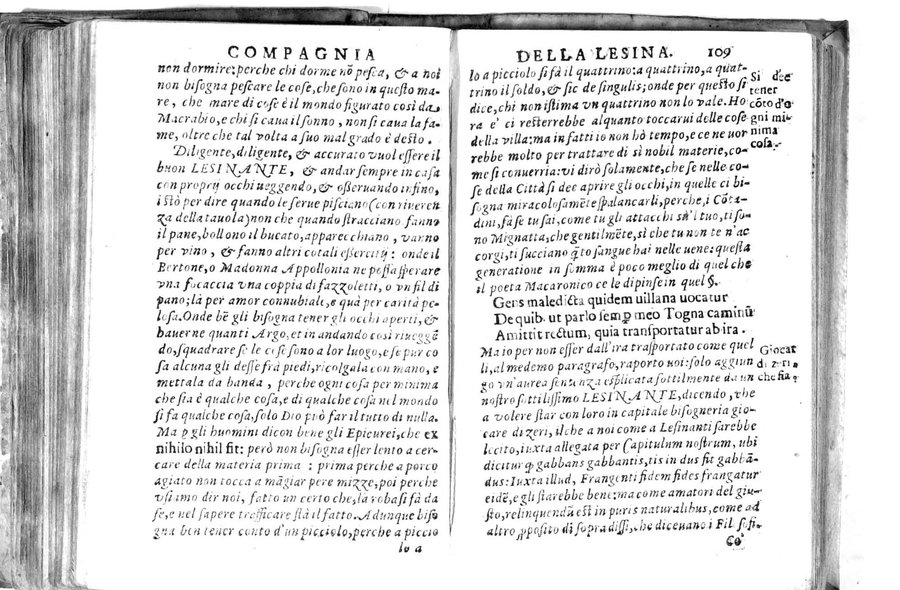 COMPAGNIA
non dormire: perche chi dorme nõ pesca, & a noi
non bisogna pescare le cose, che sono in questo ma-
re, che mare di cose è il mondo figurato così da
Macrabio, e chi si caua il sonno, non si caua la fa-
me, oltre che tal volta a suo mal grado è desto.
Diligente, diligente, & accurato vuol essere il
buon LESINANTE, & andar sempre in casa
con proprij occhi ueggendo, & osseruando infino,
i stò per dire quando le serue pisciano (con riueren
za della tauola) non che quando stracciano fanno
il pane, bollono il bucato, apparecchiano, vanno
per vino, & fanno altri cotali essercitij: onde il
Bertone, o Madonna Appollonia ne possa sperare
vna focaccia vna coppia di fazzoletti, o vn fil di
pano; là per amor connubiale, e quà per carità pe-
losa. Onde bẽ gli bisogna tener gli occhi aperti, &
hauerne quanti Argo, et in andando così riueggẽ
do, squadrare se le cose sono a lor luogo, e se pur co
sa alcuna gli desse frà piedi, ricolgala con mano, e
mettala da banda, perche ogni cosa per minima
che sia è qualche cosa, e di qualche cosa nel mondo
si fa qualche cosa, solo Dio può far il tutto di nulla.
Ma ꝑ gli huomini dicon bene gli Epicurei, che ex
nihilo nihil fit: però non bisogna esser lento a cer-
care della materia prima: prima perche a porco
agiato non tocca a mãgiar pere mizze, poi perche
vsi imo dir noi, fatto un certo che, la roba si fà da
se, e nel sapere trafficare stà il fatto. Adunque biso
gna ben tener conto d'un picciolo, perche a piccio
lo a
DELLA LESINA. 109
lo a picciolo si fà il quattrino: a quattrino, a quat-
trino il soldo, & sic de singulis; onde per questo si
dice, chi non istima vn quattrino non lo vale. Ho
ra e' ci resterrebbe alquanto toccarui delle cose
della villa; ma in fatti io non hò tempo, e ce ne uor
rebbe molto per trattare di sì nobil materie, co-
me si conuerria: vi dirò solamente, che se nelle co-
se della Città si dee aprire gli occhi, in quelle ci bi-
sogna miracolosamẽte spalancarli, perche, i Cõta-
dini, sà se tu sai, come tu gli attacchi sũ'l tuo, ti so-
no Mignatta, che gentilmẽte, sì che tu non te n'ac
corgi, ti succiano q̃to sangue hai nelle uene: questa
generatione in somma è poco meglio di quel che
il poeta Macaronico ce le dipinse in quel §.
Gens maledicta quidem uillana uocatur
De quib. ut parlo semꝑ meo Togna caminũ
Amittit rectum, quia transportatur ab ira.
Ma io per non esser dall'ira trasportato come quel
li, al medemo paragrafo, raporto uoi: solo aggiun
go vn'aurea sentenza esplicata sottilmente da un
nostro sottilissimo LESINANTE, dicendo, che
a volere star con loro in capitale bisogneria gio-
care di zeri, il che a noi come a Lesinanti sarebbe
lecito, iuxta allegata per Capitulum nostrum, ubi
dicitur ꝙ gabbans gabbantis, tis in dus fit gabbã-
dus: Iuxta illud, Frangenti fidem fides frangatur
eidẽ, e gli starebbe bene; ma come amatori del giu-
sto, relinquendũ est in puris naturalibus, come ad
altro ꝓposito di sopra dissi, che diceuano i Fil sofi-
Co'
Si dee
tener
cõto d'o
gni mi-
nima
cosa.
Giocar
di zeri
che sia.